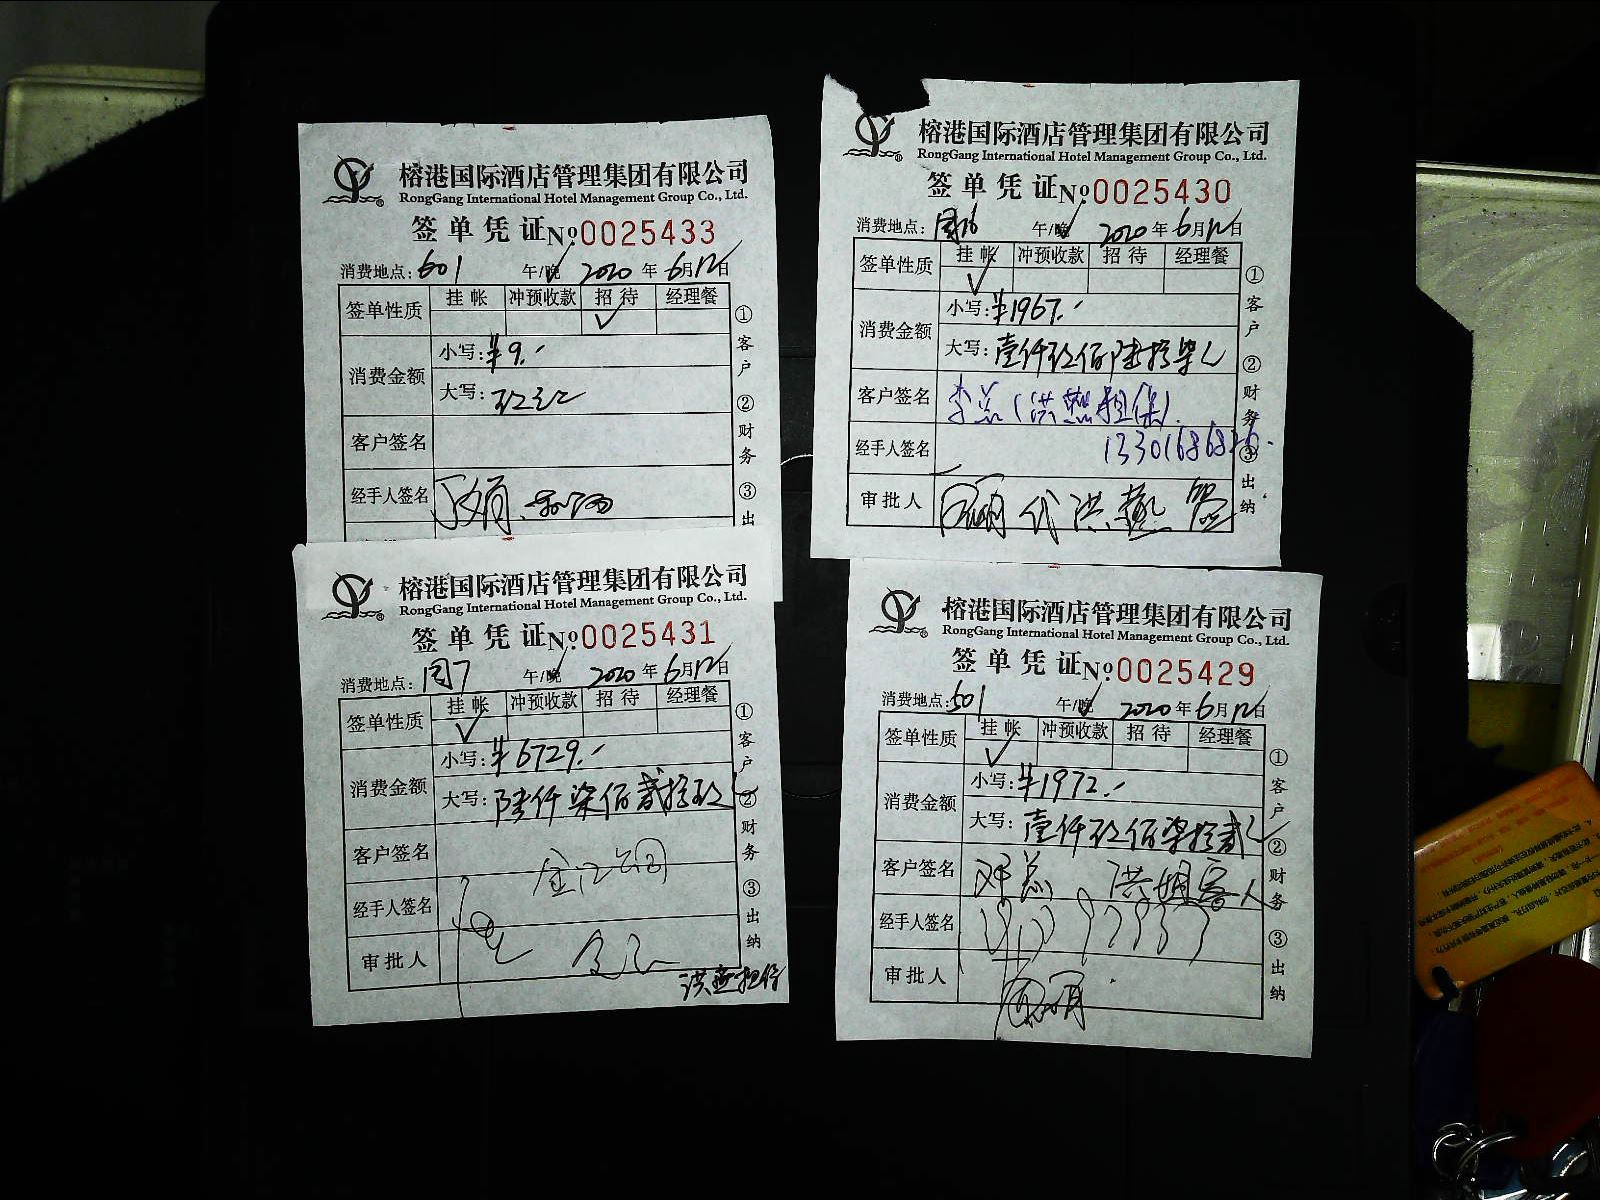 榕港国际酒店管理集团有限公司
RongGang International Hotel Management Group Co., Ltd.
签单凭证№0025433
消费地点:601 午/晚 2020年6月12日
签单性质 挂帐 冲预收款 招待 经理餐
✓
消费金额 小写:¥9.-
大写:玖元
客户签名
经手人签名
①客户 ②财务 ③出
榕港国际酒店管理集团有限公司
RongGang International Hotel Management Group Co., Ltd.
签单凭证№0025430
消费地点: 午/晚 2020年6月12日
签单性质 挂帐 冲预收款 招待 经理餐
✓
消费金额 小写:¥1967.-
大写:壹仟玖佰陆拾柒元
客户签名 李总(洪燕担保).
经手人签名
审批人 代洪燕签
①客户 ②财务 ③出纳
榕港国际酒店管理集团有限公司
RongGang International Hotel Management Group Co., Ltd.
签单凭证№0025431
消费地点: 午/晚 2020年6月12日
签单性质 挂帐 冲预收款 招待 经理餐
✓
消费金额 小写:¥6729.-
大写:陆仟柒佰贰拾玖元
客户签名
经手人签名
审批人
洪燕担保
①客户 ②财务 ③出纳
榕港国际酒店管理集团有限公司
RongGang International Hotel Management Group Co., Ltd.
签单凭证№0025429
消费地点:501 午/晚 2020年6月12日
签单性质 挂帐 冲预收款 招待 经理餐
✓
消费金额 小写:¥1972.-
大写:壹仟玖佰柒拾贰元
客户签名 邓总 洪姐客人
经手人签名
审批人
①客户 ②财务 ③出纳